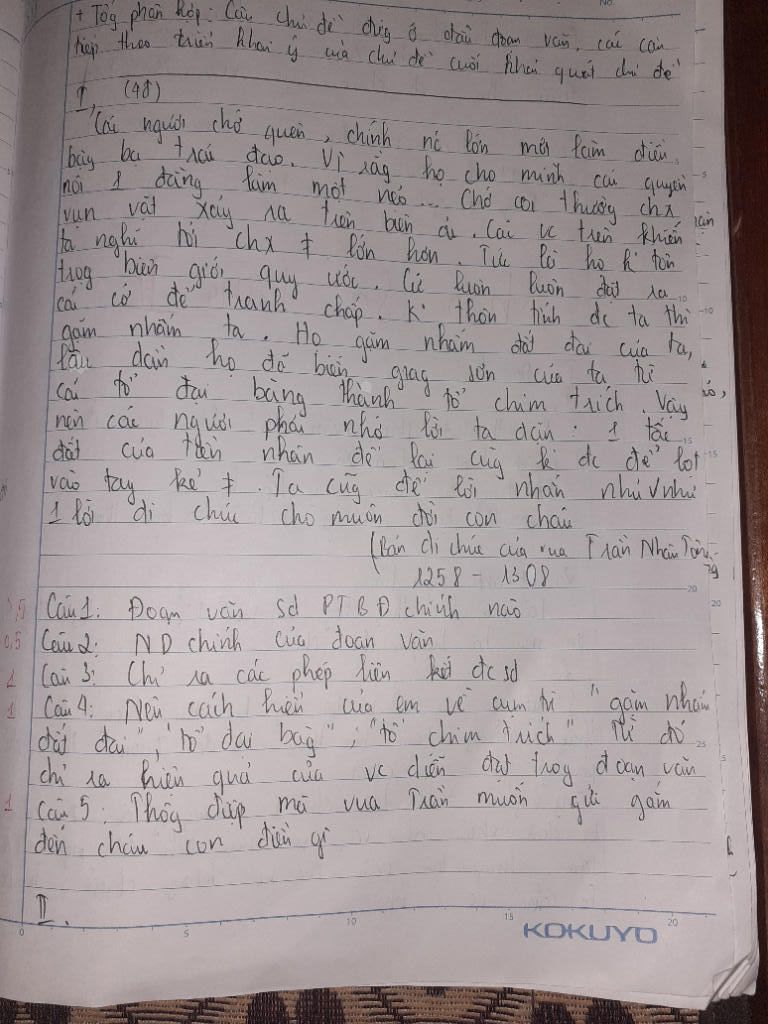 + Tổg phân hợp: Câu chủ đề đứg ở đầu đoạn văn, các câu
tiếp theo triển khai ý của chủ đề cuối khái quát chủ đề
I, (4đ)
"Các người chớ quên, chính nc lớn mới làm điều
bậy bạ trái đạo. Vì rằg họ cho mình cái quyền
nói 1 đằng làm một nẻo... Chớ coi thường chx
vụn vặt xảy ra trên biên ải. Các vc trên khiến
ta nghĩ tới chx ≠ lớn hơn. Tức là họ k tôn
trog biên giới quy ước. Cứ luôn luôn đặt ra
cái cớ để tranh chấp. K thôn tính đc ta thì
gậm nhấm ta. Họ gậm nhấm đất đai của ta,
lâu dần họ đã biến giag sơn của ta từ
cái tổ đại bàng thành tổ chim trích. Vậy
nên các người phải nhớ lời ta dặn: 1 tấc
đất của tiền nhân để lại cũg k đc để lọt
vào tay kẻ ≠. Ta cũg để lời nhắn nhủ như
1 lời di chúc cho muôn đời con cháu
(Bản di chúc của vua Trần Nhân Tông
1258 - 1308
0,5 Câu 1: Đoạn văn sd PTBĐ chính nào
0,5 Câu 2: ND chính của đoạn văn
1 Câu 3: Chỉ ra các phép liên kết đc sd
1 Câu 4: Nêu cách hiểu của em về cụm từ "gậm nhấm
đất đai", "tổ đại bàg"; "tổ chim trích" từ đó
chỉ ra hiệu quả của vc diễn đạt trog đoạn văn
1 Câu 5: Thôg điệp mà vua Trần muốn gửi gắm
đến cháu con điều gì
II.
0 5 10 15 20
KOKUYO